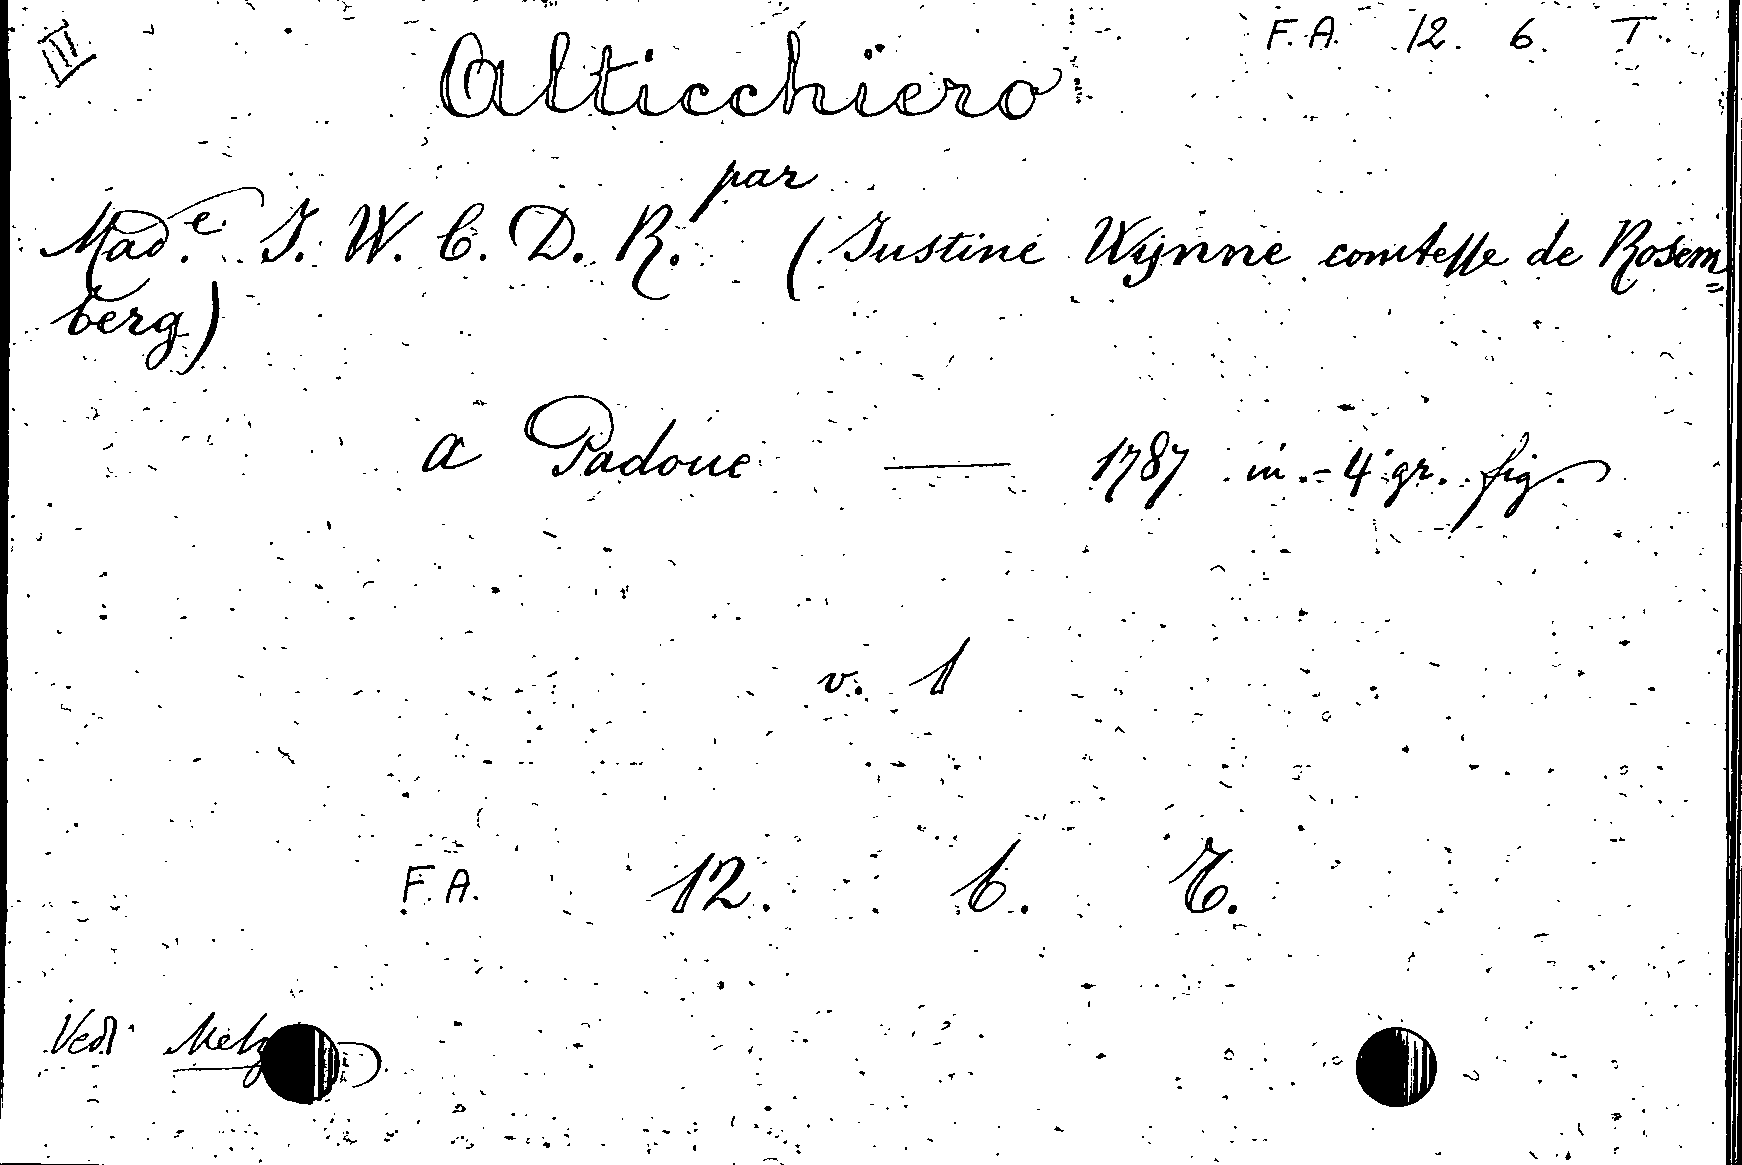 III
F. A. 12. 6. T.
Altichïero
par
Mad.e J. W. C. D. R. (Justine Wynne comtesse de Rosem=
berg)
a Padoue — 1787 in.-4° gr. fig.
v. 1
F. A. 12. 6. T.
Vedi